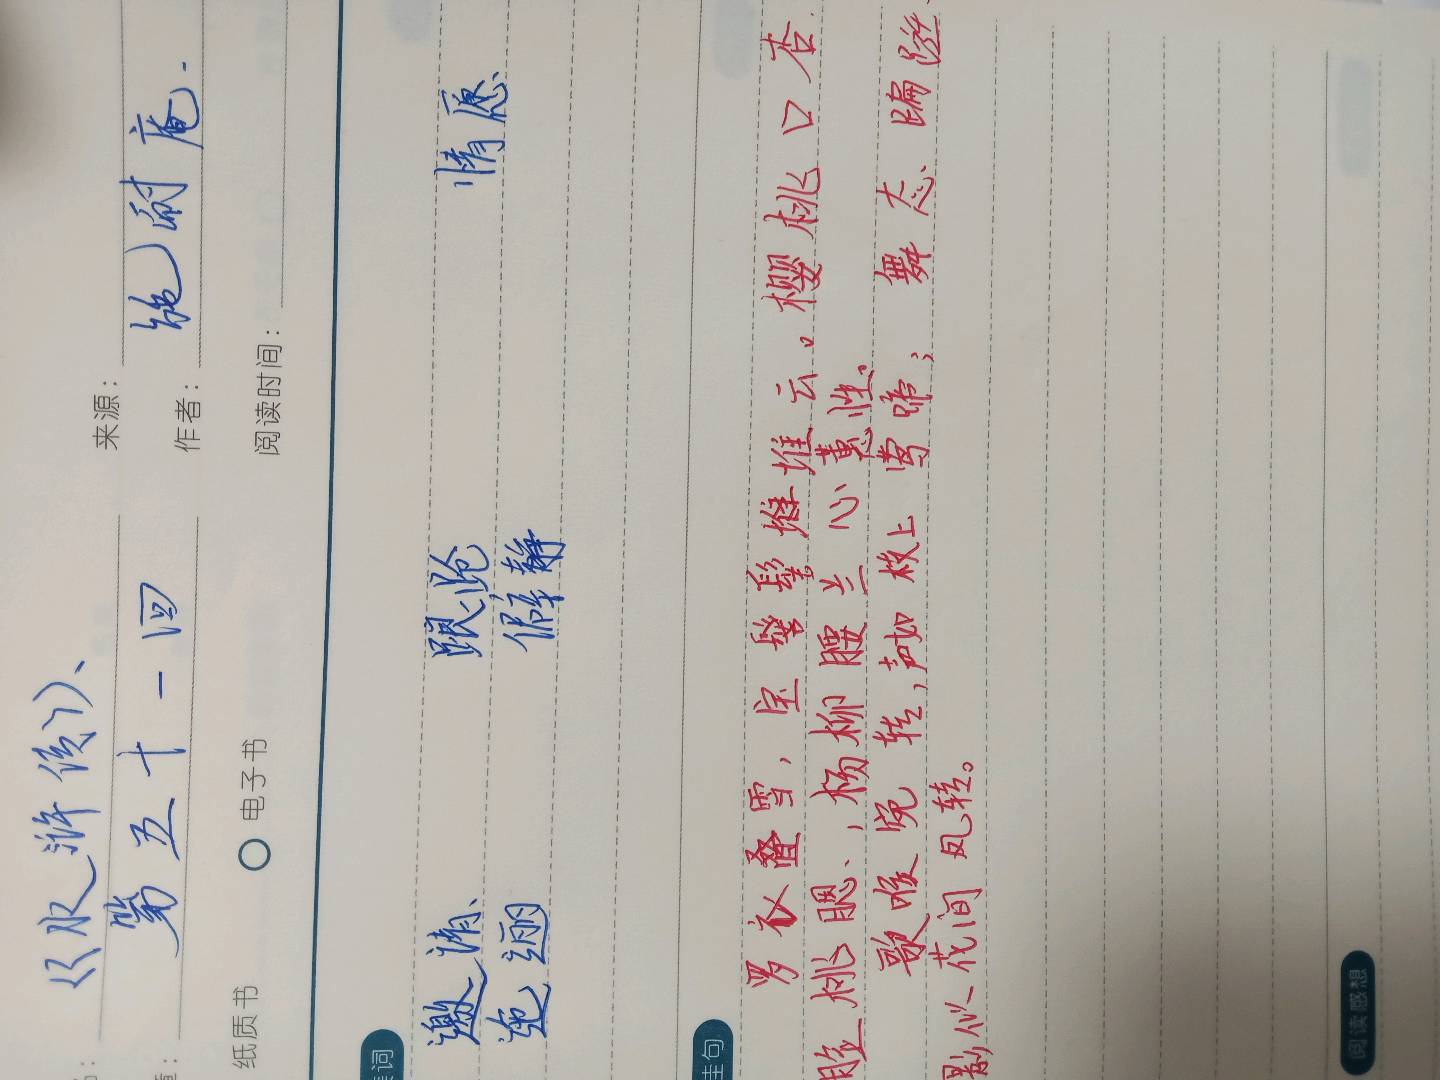 《水浒传》、 来源：
第五十一回 作者： 施耐庵.
纸质书 电子书 阅读时间：
词
邀请、 踉跄 情愿、
迤逦 僻静
佳句
罗衣叠雪，宝髻髻堆堆云。樱桃口杏.
脸桃腮、，杨柳腰兰心蕙性。
歌喉宛转，声如枝上莺啼；舞态蹁跹、
影似花间凤转。
阅读感想